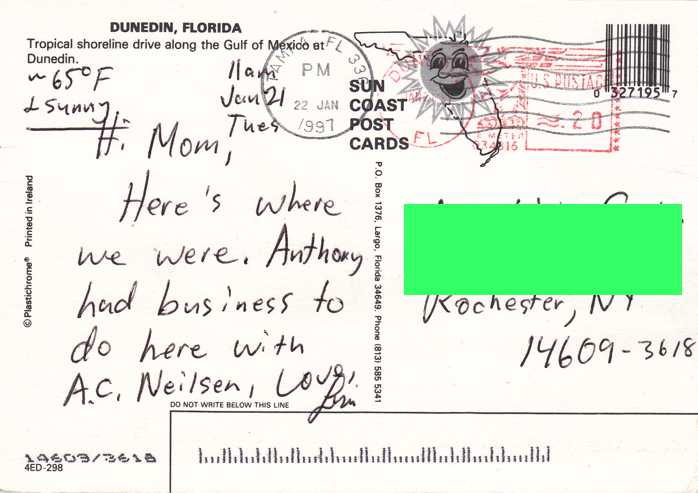 DUNEDIN, FLORIDA
Tropical shoreline drive along the Gulf of Mexico at
Dunedin.
~65°F
& sunny
11am
Jan 21
Tues
TAMPA, FL 33
PM
22 JAN
1997
SUN
COAST
POST
CARDS
FL
U.S. POSTAGE
.20
0 327195 7
Hi Mom,
Here's where
we were. Anthony
had business to
do here with
A.C. Neilsen, Love,
© Plastichrome® Printed in Ireland
P.O. Box 1376, Largo, Florida 34649. Phone (813) 585 5341
Rochester, NY
14609-3618
DO NOT WRITE BELOW THIS LINE
14609/3618
4ED-298